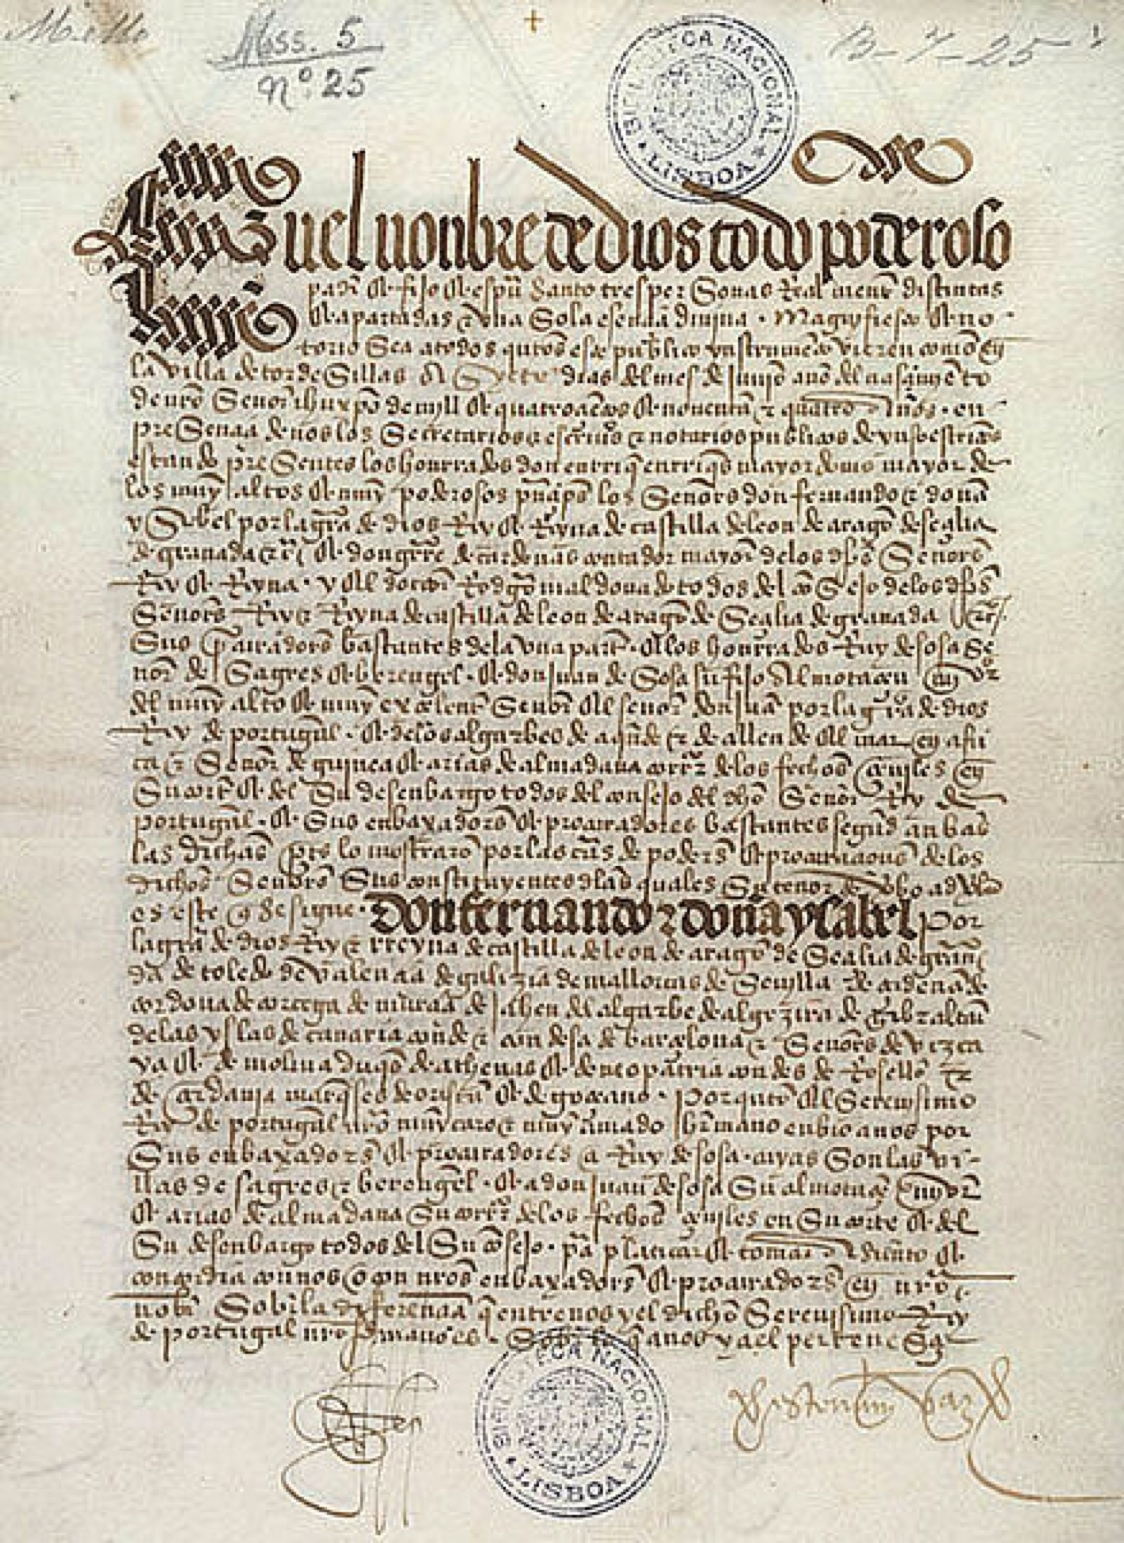 Mss. 5
nº 25
B-7-25
BIBLIOTECA NACIONAL LISBOA
En el nonbre de dios todo poderoso
padre & fijo & espu Santo tres perSonas Realmente distintas
& apartadas & vna Sola esençia diuina. Magnifiesto & no
torio Sea a todos quantos este publico ynstrumento vieren como en
la villa de tordeSillas a Syete dias del mes de junio año del nasçimiento
de nro Señor ihu xpo de mill & quatroçientos & nouenta & quatro Años. en
preSençia de nos los Secretarios & escriuanos & notarios publicos de yuso escriptos
estando preSentes los honrrados don enrrique enrriques mayordomo mayor de
los muy altos & muy poderosos prinçipes los Señores don fernando & doña
ySabel por la graçia de dios Rey & Reyna de castilla de leon de aragon de seçilia
de granada & & don gutierre de cardenas contador mayor de los dichos Señores
Rey & Reyna. y el doctor Rodrigo maldonado todos del conSejo de los dichos
Señores Rey & Reyna de castilla de leon de aragon de Seçilia de granada &
Sus procuradores bastantes de la vna parte. & los honrrados Ruy de sosa Se
ñor de Sagres & berengel. & don Juan de Sosa su fijo Almotaçen mayor
del muy alto & muy exçelente Señor el señor don juan por la graçia de dios
Rey de portugal. & de los algarbes de aquende & de allende el mar en afri
ca & Señor de guinea & arias de almadana corregidor de los fechos çeuiles en
Su corte & del Su desenbargo todos del consejo del dicho Señor Rey de
portugal. & Sus enbaxadores & procuradores bastantes segund anbas
las dichas partes lo mostraron por las cartas de poderes & procuraçiones de los
dichos Señores Sus constituyentes de las quales Su tenor de verbo ad verbum
es este que se sigue. Don fernando & doña ysabel por
la graçia de dios Rey & rreyna de castilla de leon de aragon de Seçilia de grana
da de toledo de valençia de galizia de mallorcas de Seuilla de çerdeña de
cordoua de corçega de murçia de jahen del algarbe de algezira de gibraltar
de las yslas de canaria conde & condesa de barçelona & Señores de vizca
ya & de molina duques de athenas & de neopatria condes de Rosellon &
de çerdania marqueses de oristan & de goçeano. Por quanto el Serenisimo
Rey de portugal nro muy caro & muy amado hermano enbio a nos por
Sus enbaxadores & procuradores a Ruy de sosa. cuyas Son las vi-
llas de sagres & berengel. & a don Juan de sosa Su almotaçen mayor
& arias de almadana Su corregidor de los fechos çeuiles en Su corte & del
Su desenbargo todos del Su consejo. para platicar & tomar asiento &
concordia con nos o con nros enbaxadores & procuradores en nro
nonbre Sobre la diferençia que entre nos y el dicho Serenissimo Rey
de portugal nro hermano es. Sobre lo que a nos y a el perteneSçe
BIBLIOTECA NACIONAL LISBOA